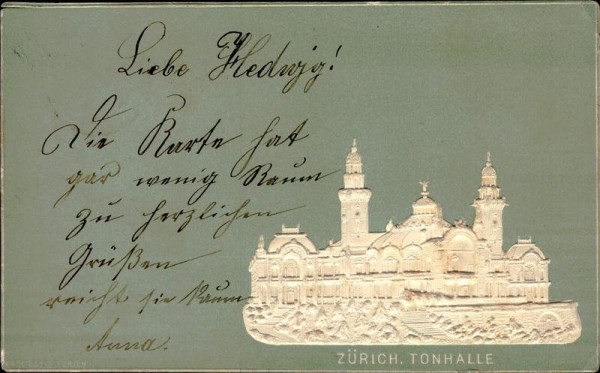 Liebe Hedwig!
Die Karte hat
gar wenig Raum
zu herzlichen
Grüßen
reicht sie kaum
Anna.
ZÜRICH. TONHALLE